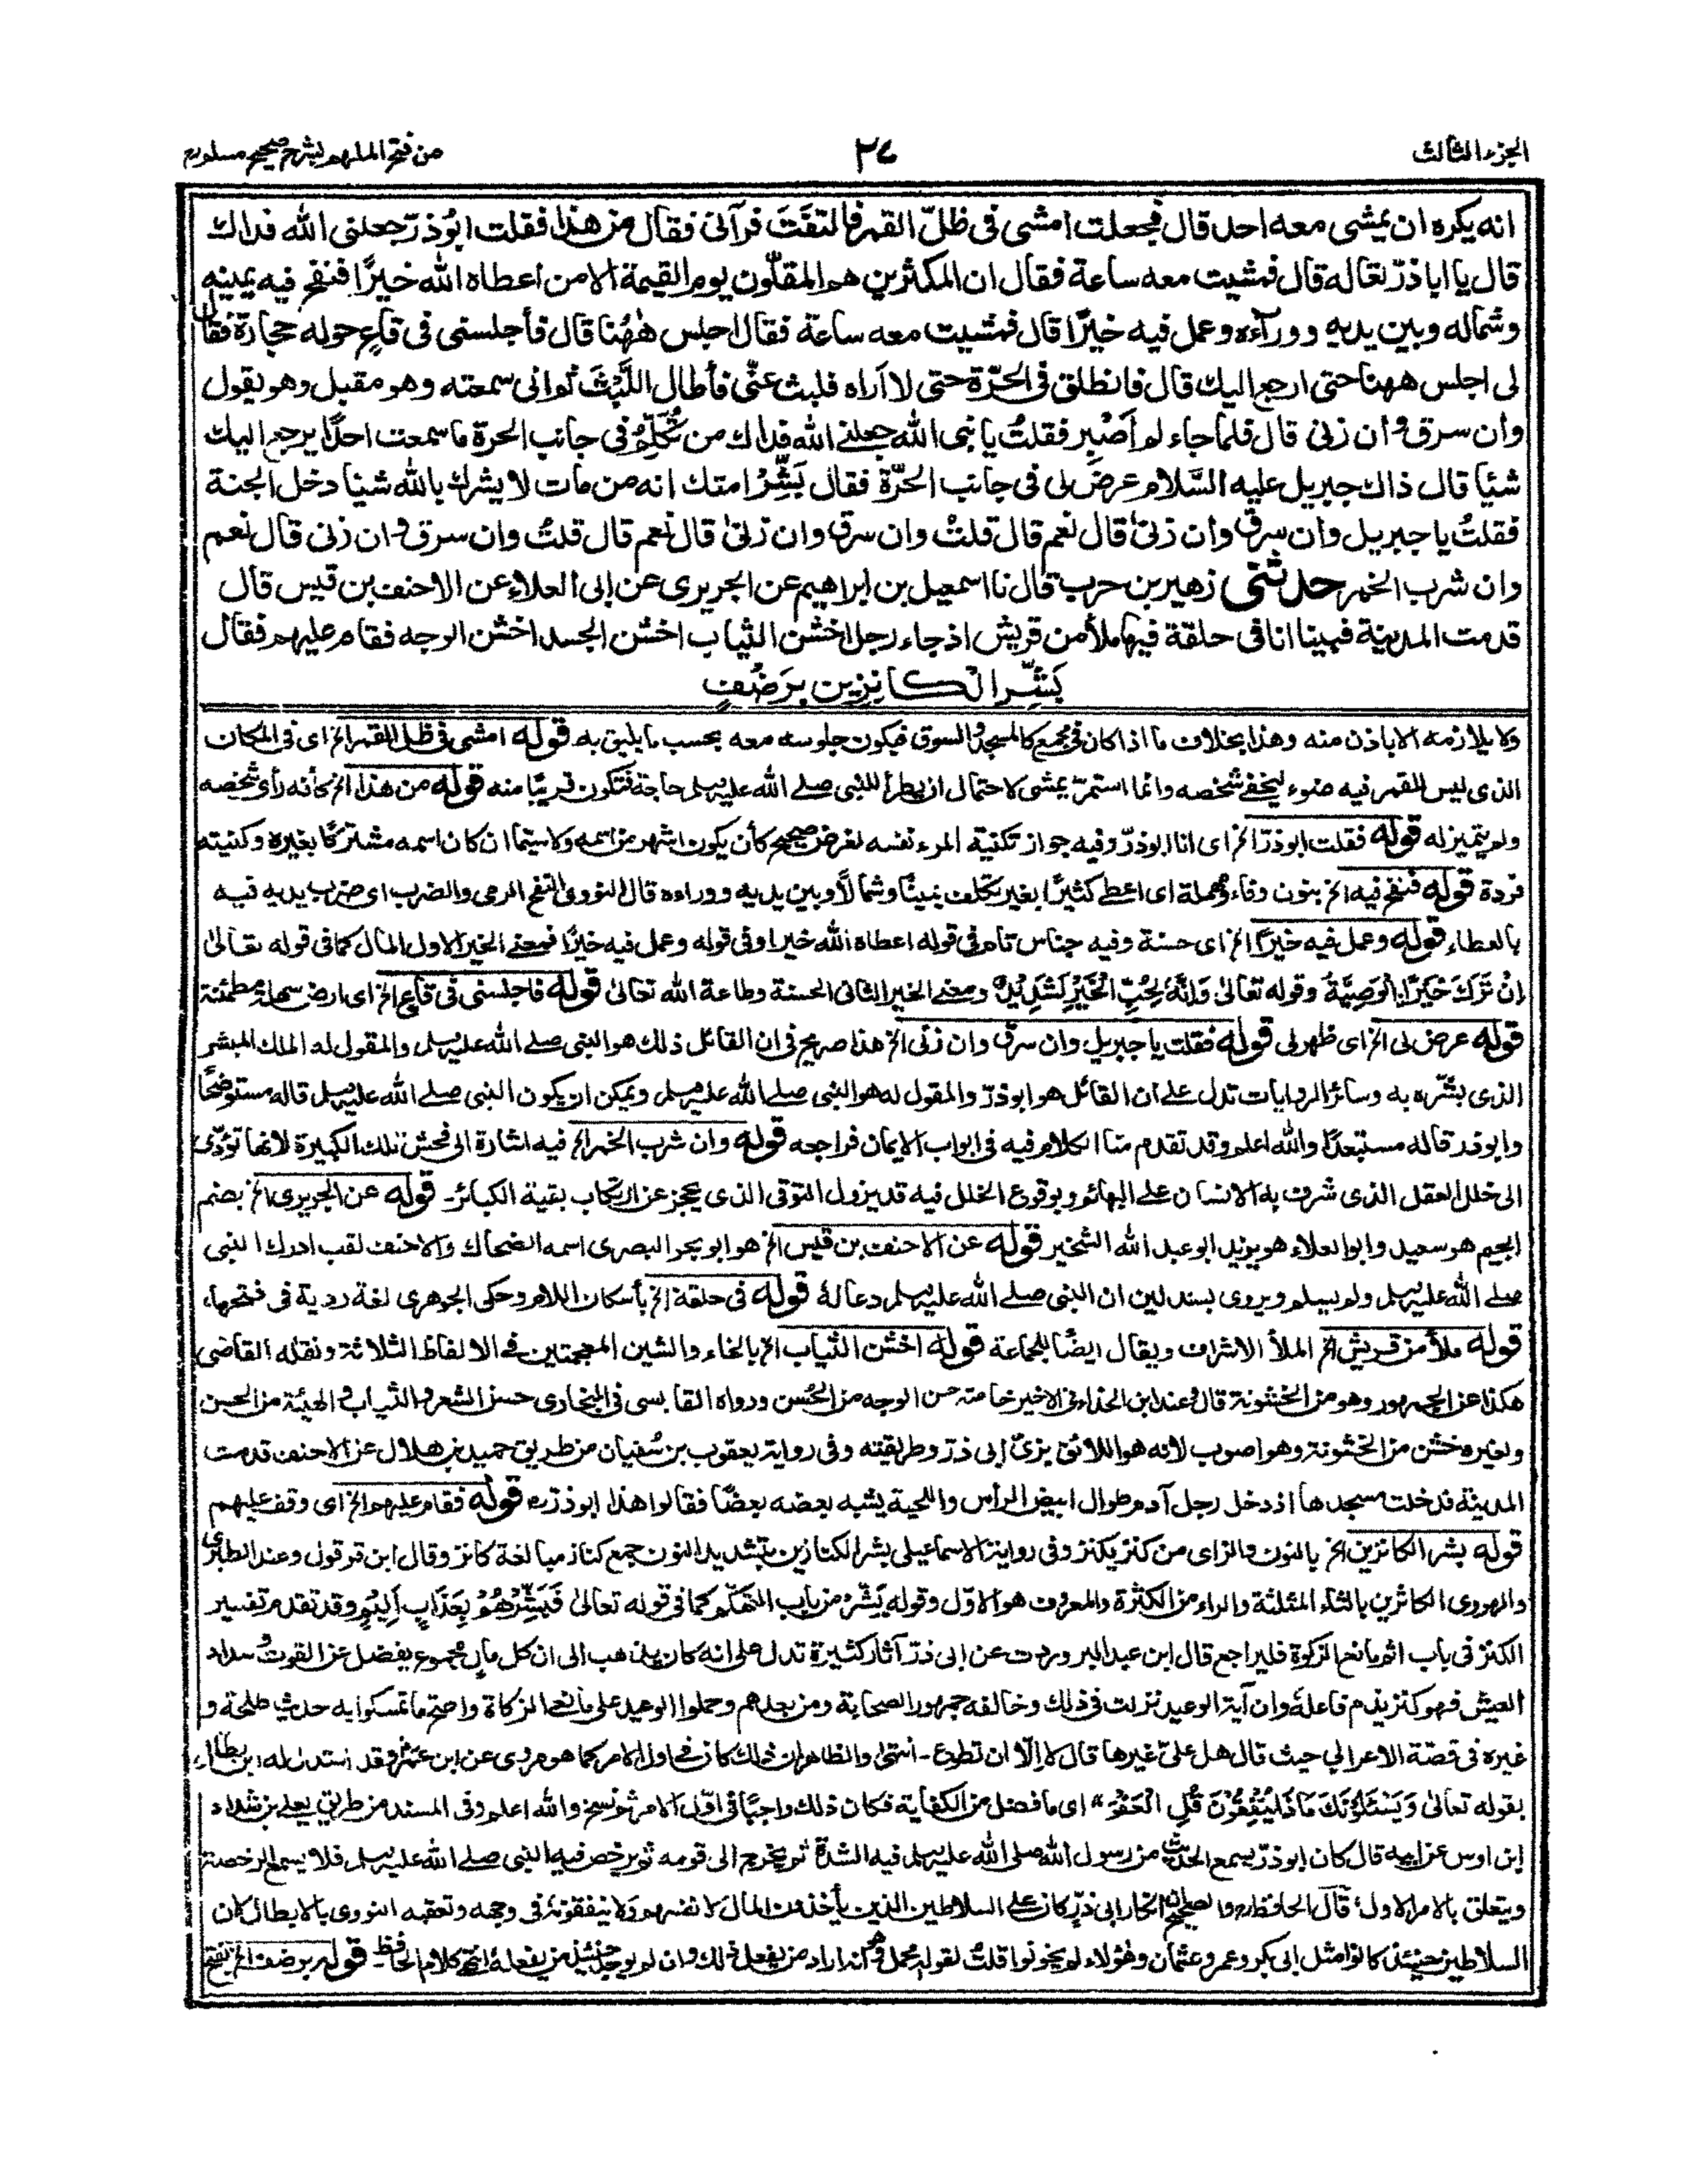 الجزء الثالث
٢٧
من فتح الملهم بشرح صحيح مسلم
انه يكره ان يمشى معه احد قال فجعلت امشى فى ظلّ القمر فالتفَتَ فرآنى فقال من هذا فقلت ابُوذرّ جعلنى الله فداك
قال يا اباذرّ تعاله قال فمشيت معه ساعة فقال ان المكثرين هم المقلّون يوم القيمة الا من اعطاه الله خيرًا فنفح فيه يمينه
وشماله وبين يديه ووراءه وعمل فيه خيرًا قال فمشيت معه ساعة فقال اجلس ههُنا قال فأجلسنى فى قاعٍ حوله حجارة فقال
لى اجلس ههنا حتى ارجع اليك قال فانطلق فى الحرّة حتى لا اَراه فلبث عنّى فأطال اللَّبْثَ ثم انى سمعته وهو مقبل وهو يقول
وان سرق وان زنى قال فلما جاء لم اَصْبِر فقلتُ يا نبى الله جعلنى الله فداك من تُكَلِّمُ فى جانب الحرة ما سمعت احدًا يرجع اليك
شيئا قال ذاك جبريل عليه السَّلام عرض لى فى جانب الحَرّة فقال بَشِّرْ امتك انه من مات لا يشرك بالله شيئا دخل الجنة
فقلتُ يا جبريل وان سرق وان زنىٰ قال نعم قال قلتُ وان سرق وان زنىٰ قال نعم قال قلتُ وان سرق وان زنى قال نعم
وان شرب الخمر حدثنى زهير بن حرب قال نا اسمعيل بن ابراهيم عن الجريرى عن ابى العلاء عن الاحنف بن قيس قال
قدمت المدينة فبينا انا فى حلقة فيها ملأ من قريش اذ جاء رجل اخشن الثياب اخشن الجسد اخشن الوجه فقام عليهم فقال
بَشِّرِ الكانِزِين برَضْفٍ
ولا يلازمه الا باذن منه وهذا بخلاف ما اذا كان فى مجمع كالمسجد والسوق فيكون جلوسه معه بحسب ما يليق به قوله امشى فى ظل القمر الخ اى فى المكان
الذى ليس للقمر فيه ضوء ليخفى شخصه وانما استمرّ يمشى لاحتمال ان يطرأ للنبى صلى الله عليه وسلم حاجة فتكون قريبًا منه قوله من هذا الخ كأنه رأى شخصه
ولم يتميز له قوله فقلت ابوذرّ الخ اى انا ابوذرّ وفيه جواز تكنية المرء نفسه لغرض صحيح كأن يكون اشهر من اسمه ولا سيما ان كان اسمه مشتركًا بغيره وكنيته
فردة قوله فنفح فيه الخ بنون وفاء ومهملة اى اعطى كثيرًا بغير تكلف يمينًا وشمالًا وبين يديه ووراءه قال النووى النفح الرمى والضرب اى ضرب يديه فيه
بالعطاء قوله وعمل فيه خيرًا الخ اى حسنة وفيه جناس تام فى قوله اعطاه الله خيرا وفى قوله وعمل فيه خيرًا فمعنى الخير الاول المال كما فى قوله تعالىٰ
اِنْ تَرَكَ خَيْرًا اِلْوَصِيَّةُ وقوله تعالىٰ وَاِنَّهُ لِحُبِّ الْخَيْرِ لَشَدِيْدٌ ومعنى الخير الثانى الحسنة وطاعة الله تعالىٰ قوله فاجلسنى فى قاع الخ اى ارض سهلة مطمئنة
قوله عرض لى الخ اى ظهر لى قوله فقلت يا جبريل وان سرق وان زنى الخ هذا صريح فى ان القائل ذلك هو النبى صلى الله عليه وسلم والمقول له الملك المبشر
الذى بشّره به وسائر الروايات تدل على ان القائل هو ابوذرّ والمقول له هو النبى صلى الله عليه وسلم ويمكن ان يكون النبى صلى الله عليه وسلم قاله مستوضحًا
وابوذر قاله مستبعدًا والله اعلم وقد تقدم منا الكلام فيه فى ابواب الايمان فراجعه قوله وان شرب الخمر الخ فيه اشارة الى فحش تلك الكبيرة لانها تؤدّى
الى خلل العقل الذى شرف به الانسان على البهائم وبوقوع الخلل فيه قد يزول التوقى الذى يحجز عن ارتكاب بقية الكبائر۔ قوله عن الجريرى الخ بضم
الجيم هو سعيد وابو العلاء هو يزيد ابو عبد الله الشخير قوله عن الاحنف بن قيس الخ هو ابو بحر البصرى اسمه الضحاك والاحنف لقب ادرك النبى
صلى الله عليه وسلم ولم يسلم ويروى بسند لين ان النبى صلى الله عليه وسلم دعا له قوله فى حلقة الخ بأسكان اللام وحكى الجوهرى لغة ردية فى فتحها،
قوله ملأ من قريش الخ الملأ الاشراف ويقال ايضًا للجماعة قوله اخشن الثياب الخ بالخاء والشين المعجمتين فى الالفاظ الثلاثة ونقله القاضى
هكذا عن الجمهور وهو من الخشونة قال وعند ابن الحذاء فى الاخير خاصة حسن الوجه من الحُسن ورواه القابسى فى البخارى حسن الشعر والثياب والهيئة من الحسن
ولغيره خشن من الخشونة وهو اصوب لانه هو اللائق بزىّ ابى ذرّ وطريقته وفى رواية يعقوب بن سُفيان من طريق حميد بن هلال عن الاحنف قدمت
المدينة فدخلت مسجدها اذ دخل رجل آدم طوال ابيض الرأس واللحية يشبه بعضه بعضًا فقالوا هذا ابوذرّ قوله فقام عليهم الخ اى وقف عليهم
قوله بشر الكانزين الخ بالنون والزاى من كنز يكنز وفى رواية الاسماعيلى بشر الكنازين بتشديد النون جمع كناز مبالغة كانز وقال ابن قرقول وعند الطبرى
والهروى الكاثرين بالثاء المثلثة والراء من الكثرة والمعروف هو الاوّل وقوله بَشّر من باب التهكّم كما فى قوله تعالىٰ فَبَشِّرْهُمْ بِعَذَابٍ اَلِيْمٍ وقد تقدم تفسير
الكنز فى باب اثم مانع الزكوة فليراجع قال ابن عبد البر وردت عن ابى ذرّ آثار كثيرة تدل على انه كان يذهب الى ان كل مال مجموع يفضل عن القوت وسداد
العيش فهو كنز يذم فاعله وان آية الوعيد نزلت فى ذلك وخالفه جمهور الصحابة ومن بعدهم وحملوا الوعيد على مانعى الزكاة واصح ما تمسكوا به حديث طلحة و
غيره فى قصّة الاعرابي حيث قال هل علىّ غيرها قال لا اِلّا ان تطوع۔ انتهىٰ والظاهر ان ذلك كان فى اول الامر كما هو مروى عن ابن عمرؓ وقد استدل له ابن بطال
بقوله تعالىٰ وَيَسْئَلُوْنَكَ مَاذَا يُنْفِقُوْنَ قُلِ الْعَفْوَ" اى ما فضل من الكفاية فكان ذلك واجبًا فى اوّل الامر ثم نسخ والله اعلم وفى المسند من طريق يعلى بن شداد
ابن اوس عن ابيه قال كان ابوذرّ يسمع الحديث من رسول الله صلى الله عليه وسلم فيه الشدة ثم يخرج الى قومه ثم يرخص فيه النبى صلى الله عليه وسلم فلا يسمع الرخصة
ويتعلق بالامر الاول، قال الحافظ والصحيح ان انكار ابى ذرّ كان على السلاطين الذين يأخذون المال لانفسهم ولا ينفقونه فى وجهه وتعقبه النووى بالابطال لان
السلاطين حينئذ كانوا مثل ابى بكر وعمر وعثمان وهٰؤلاء لم يخونوا قلتُ لقوله محمل وهو انه اراد من يفعل ذلك وان لم يوجد حينئذ من يفعله انتهى كلام الحافظ۔ قوله برضف الخ بفتح